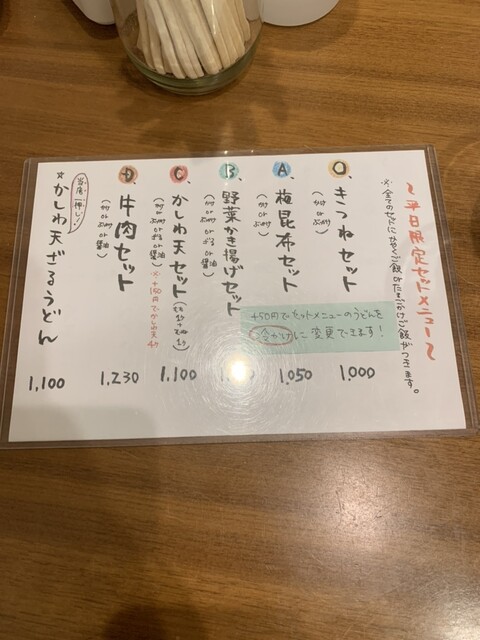 ～平日限定セットメニュー～
※全てのセットにかやくご飯orたまごかけご飯がつきます。
O、きつねセット
(かけ or ぶっかけ)
1,000
A、梅昆布セット
(かけ or ぶっかけ)
1,050
+50円でセットメニューのうどんを
冷かけに変更できます！
B、野菜かき揚げセット
(かけ or ぶっかけ or ざる or 醤油)
C、かしわ天セット
(かけ or ぶっかけ or ざる or 醤油)
1,100
D、牛肉セット
(かけ or ぶっかけ or 醤油)
1,230
当店一押し！
☆かしわ天ざるうどん
1,100